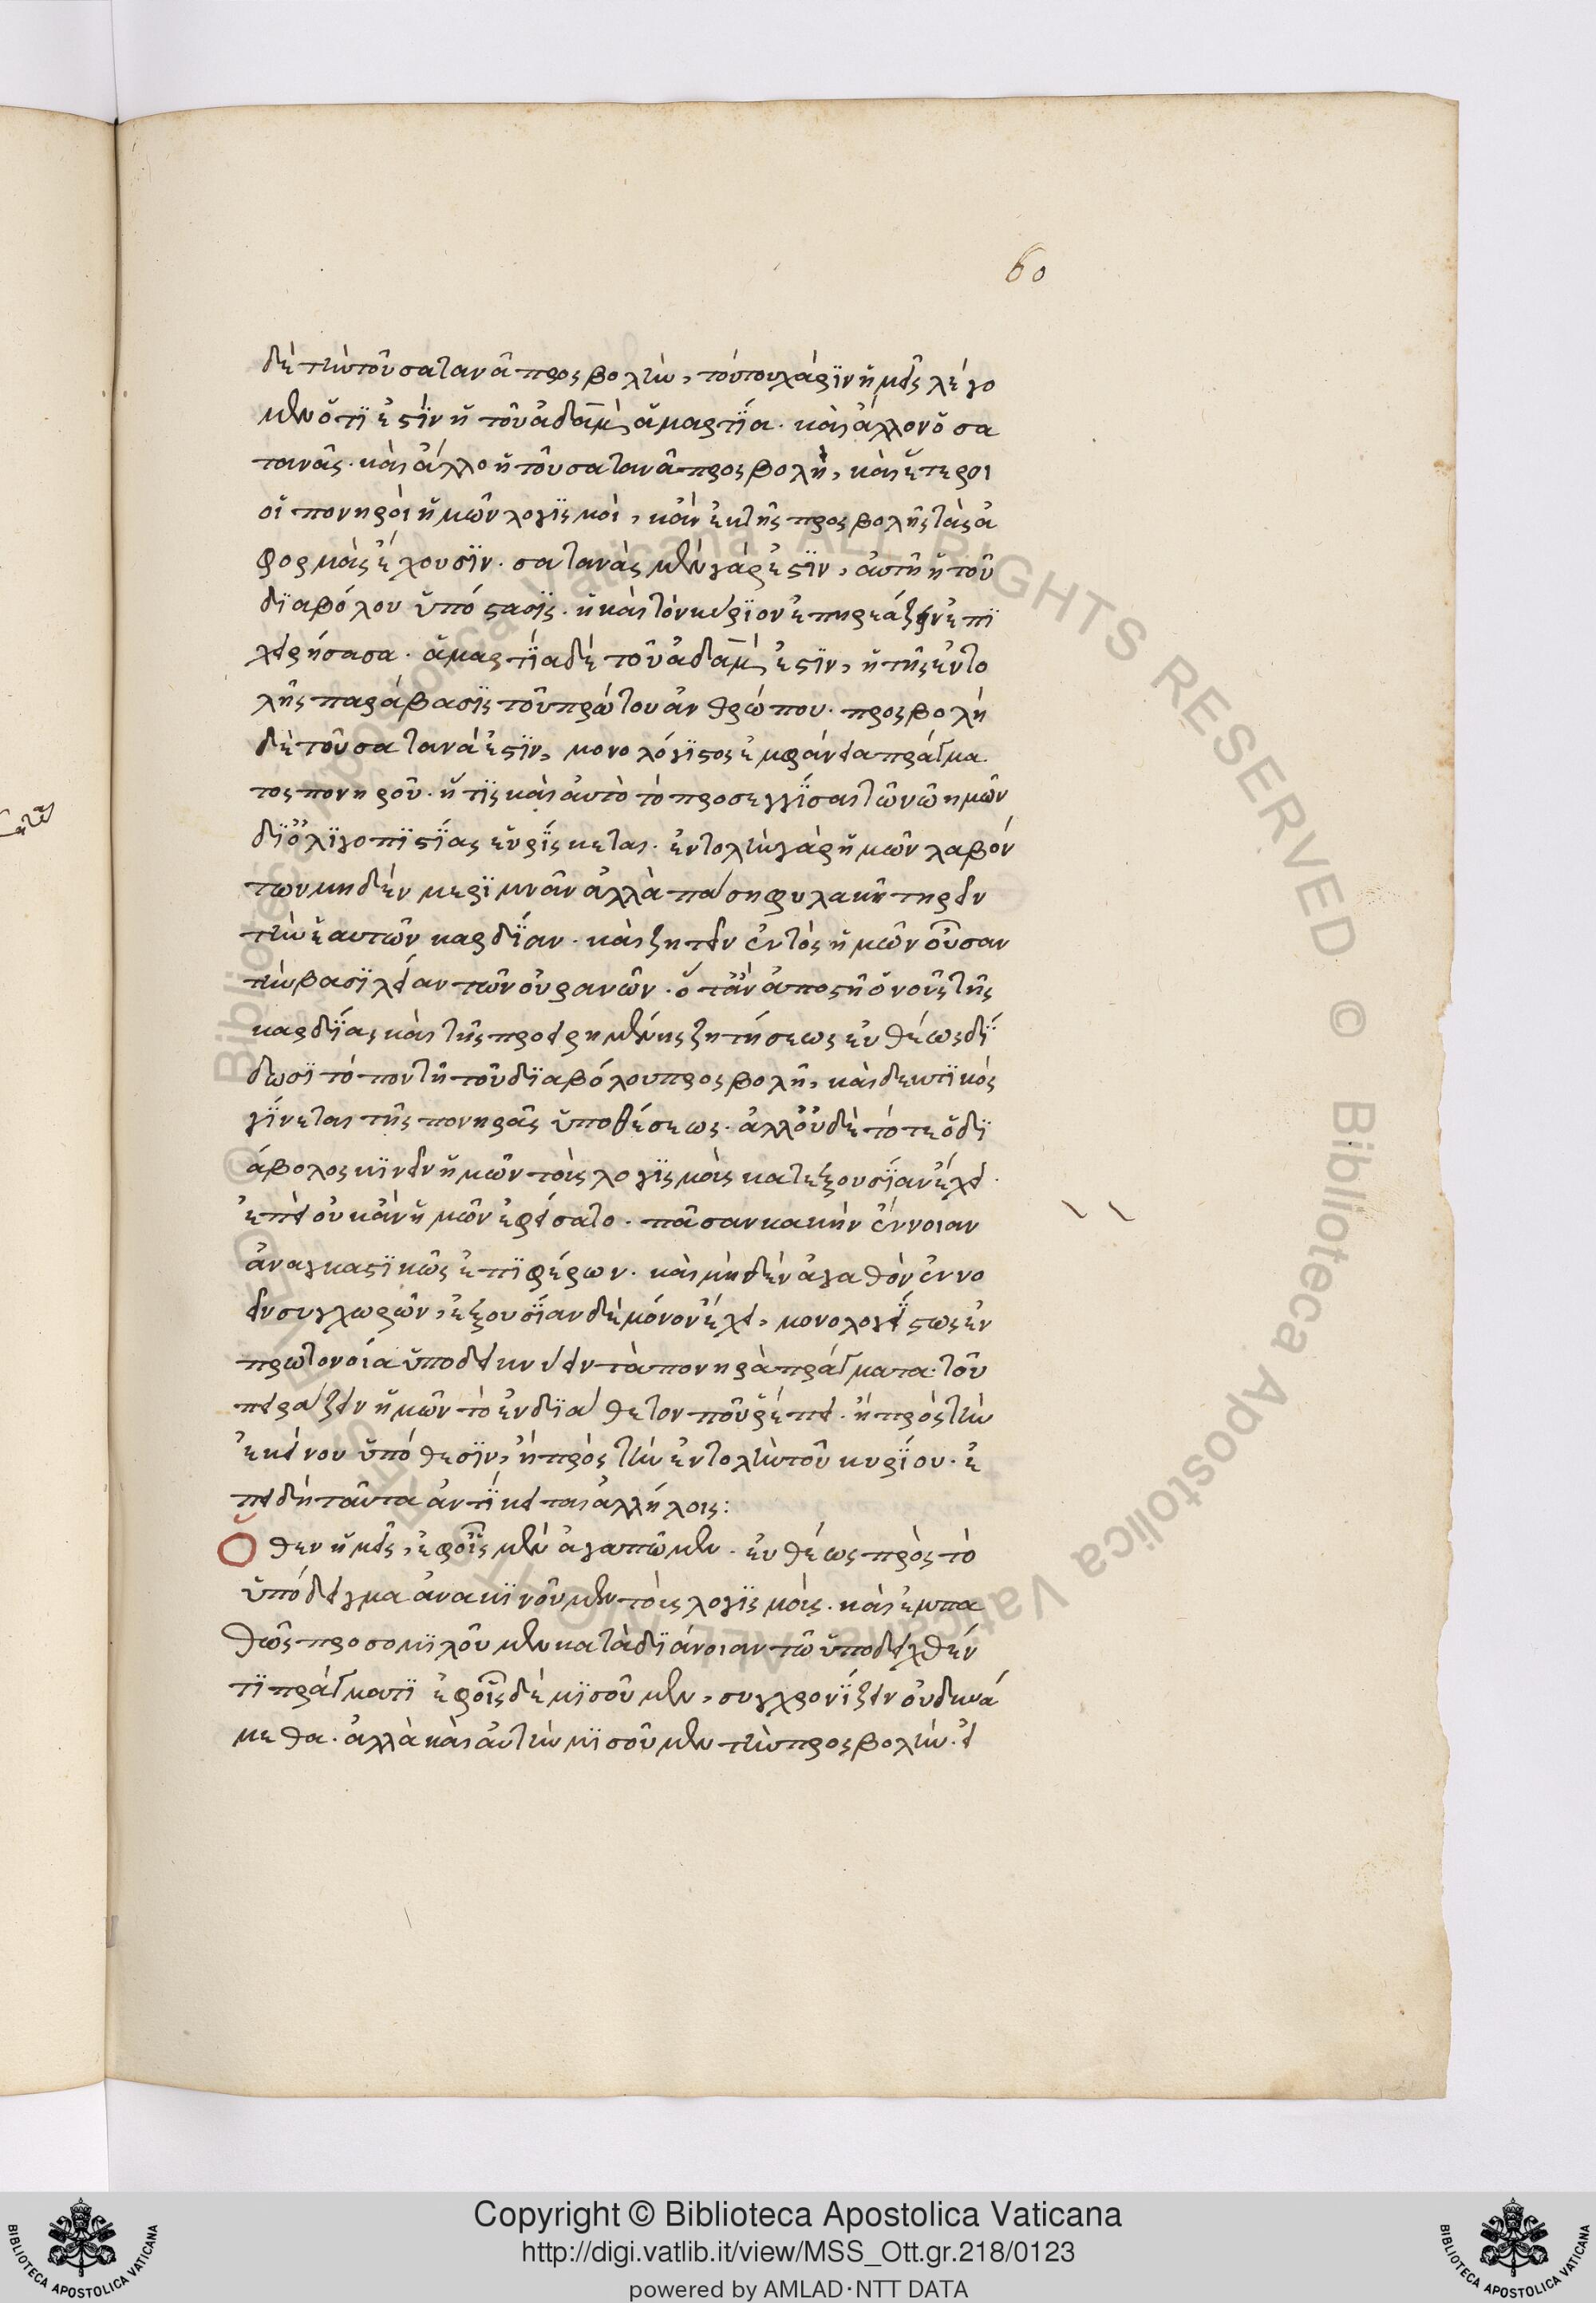 60
δὲ τὴν τοῦ σατανᾶ προσβολήν, τούτου χάριν ἡμεῖς λέγο
μεν ὅτι ἐστὶν ἡ τοῦ ἀδὰμ ἁμαρτία. καὶ ἄλλο ὁ σα
τανᾶς. καὶ ἄλλο ἡ τοῦ σατανᾶ προσβολὴ, καὶ ἕτεροι
οἱ πονηροὶ ἡμῶν λογισμοὶ, κἂν ἐκ τῆς προσβολῆς τὰς ἀ
φορμὰς ἔχουσιν. σατανὰς μὲν γάρ ἐστιν, αὐτὴ ἡ τοῦ
διαβόλου ὑπόστασις. ἡ καὶ τὸν κύριον ἐπηρεάζειν ἐπι
χειρήσασα. ἁμαρτία δὲ τοῦ ἀδάμ ἐστιν, ἡ τῆς ἐντο
λῆς παράβασις τοῦ πρώτου ἀνθρώπου. προσβολὴ
δὲ τοῦ σατανά ἐστιν, μονολόγιστος ἐμφάνεια πράγμα
τος πονηροῦ. ἥτις καὶ αὐτὸ τὸ προσεγγίσαι τῶ νῶ ημῶν
δι ὀλιγοπιστίας εὑρίσκεται. ἐντολὴν γὰρ ἡμῶν λαβόν
των μηδὲν μεριμνᾶν ἀλλὰ πάση φυλακῆ τηρεῖν
τὴν ἑαυτῶν καρδίαν. καὶ ζητεῖν ἐντὸς ἡμῶν οὖσαν
τὴν βασιλείαν τῶν οὐρανῶν. ὅταν ἀποστῆ ὁ νοῦς τῆς
καρδίας καὶ τῆς προειρημένης ζητήσεως εὐθέως δί
δωσι τόπον τῆ τοῦ διαβόλου προσβολῆ, καὶ δεκτικὸς
γίνεται τῆς πονηρᾶς ὑποθέσεως. ἀλλ οὐδὲ τότε ὁ δι
άβολος κινεῖν ἡμῶν τοὺς λογισμοὺς κατεξουσίαν ἔχει.
ἐπεὶ οὐκ ἂν ἡμῶν ἐφείσατο. πᾶσαν κακὴν ἔννοιαν
ἀναγκαστικῶς ἐπιφέρων. καὶ μηδὲν ἀγαθὸν ἐννο
εῖν συγχωρῶν, ἐξουσίαν δὲ μόνον ἔχει, μονολογίστως ἐν
πρωτονοία ὑποδεικνύειν τὰ πονηρὰ πράγματα. τοῦ
πειράζειν ἡμῶν τὸ ἐνδιάθετον ποῦ ῥέπει. ἢ πρὸς τὴν
ἐκείνου ὑπόθεσιν, ἢ πρὸς τὴν ἐντολὴν τοῦ κυρίου. ἐ
πειδὴ ταῦτα ἀντίκειται ἀλλήλοις:
Ὅθεν ἡμεῖς, ἐφ οἷς μὲν ἀγαπῶμεν. εὐθέως πρὸς τὸ
ὑπόδειγμα ἀνακινοῦμεν τοὺς λογισμούς. καὶ ἐμπα
θῶς προσομιλοῦμεν κατὰ διάνοιαν τῶ ὑποδειχθέν
τι πράγματι ἐφ οἷς δὲ μισοῦμεν, συγχρονίζειν οὐ δυνά
μεθα. ἀλλὰ καὶ αὐτὴν μισοῦμεν τὴν προσβολήν. εἰ
Copyright © Biblioteca Apostolica Vaticana
http://digi.vatlib.it/view/MSS_Ott.gr.218/0123
powered by AMLAD·NTT DATA